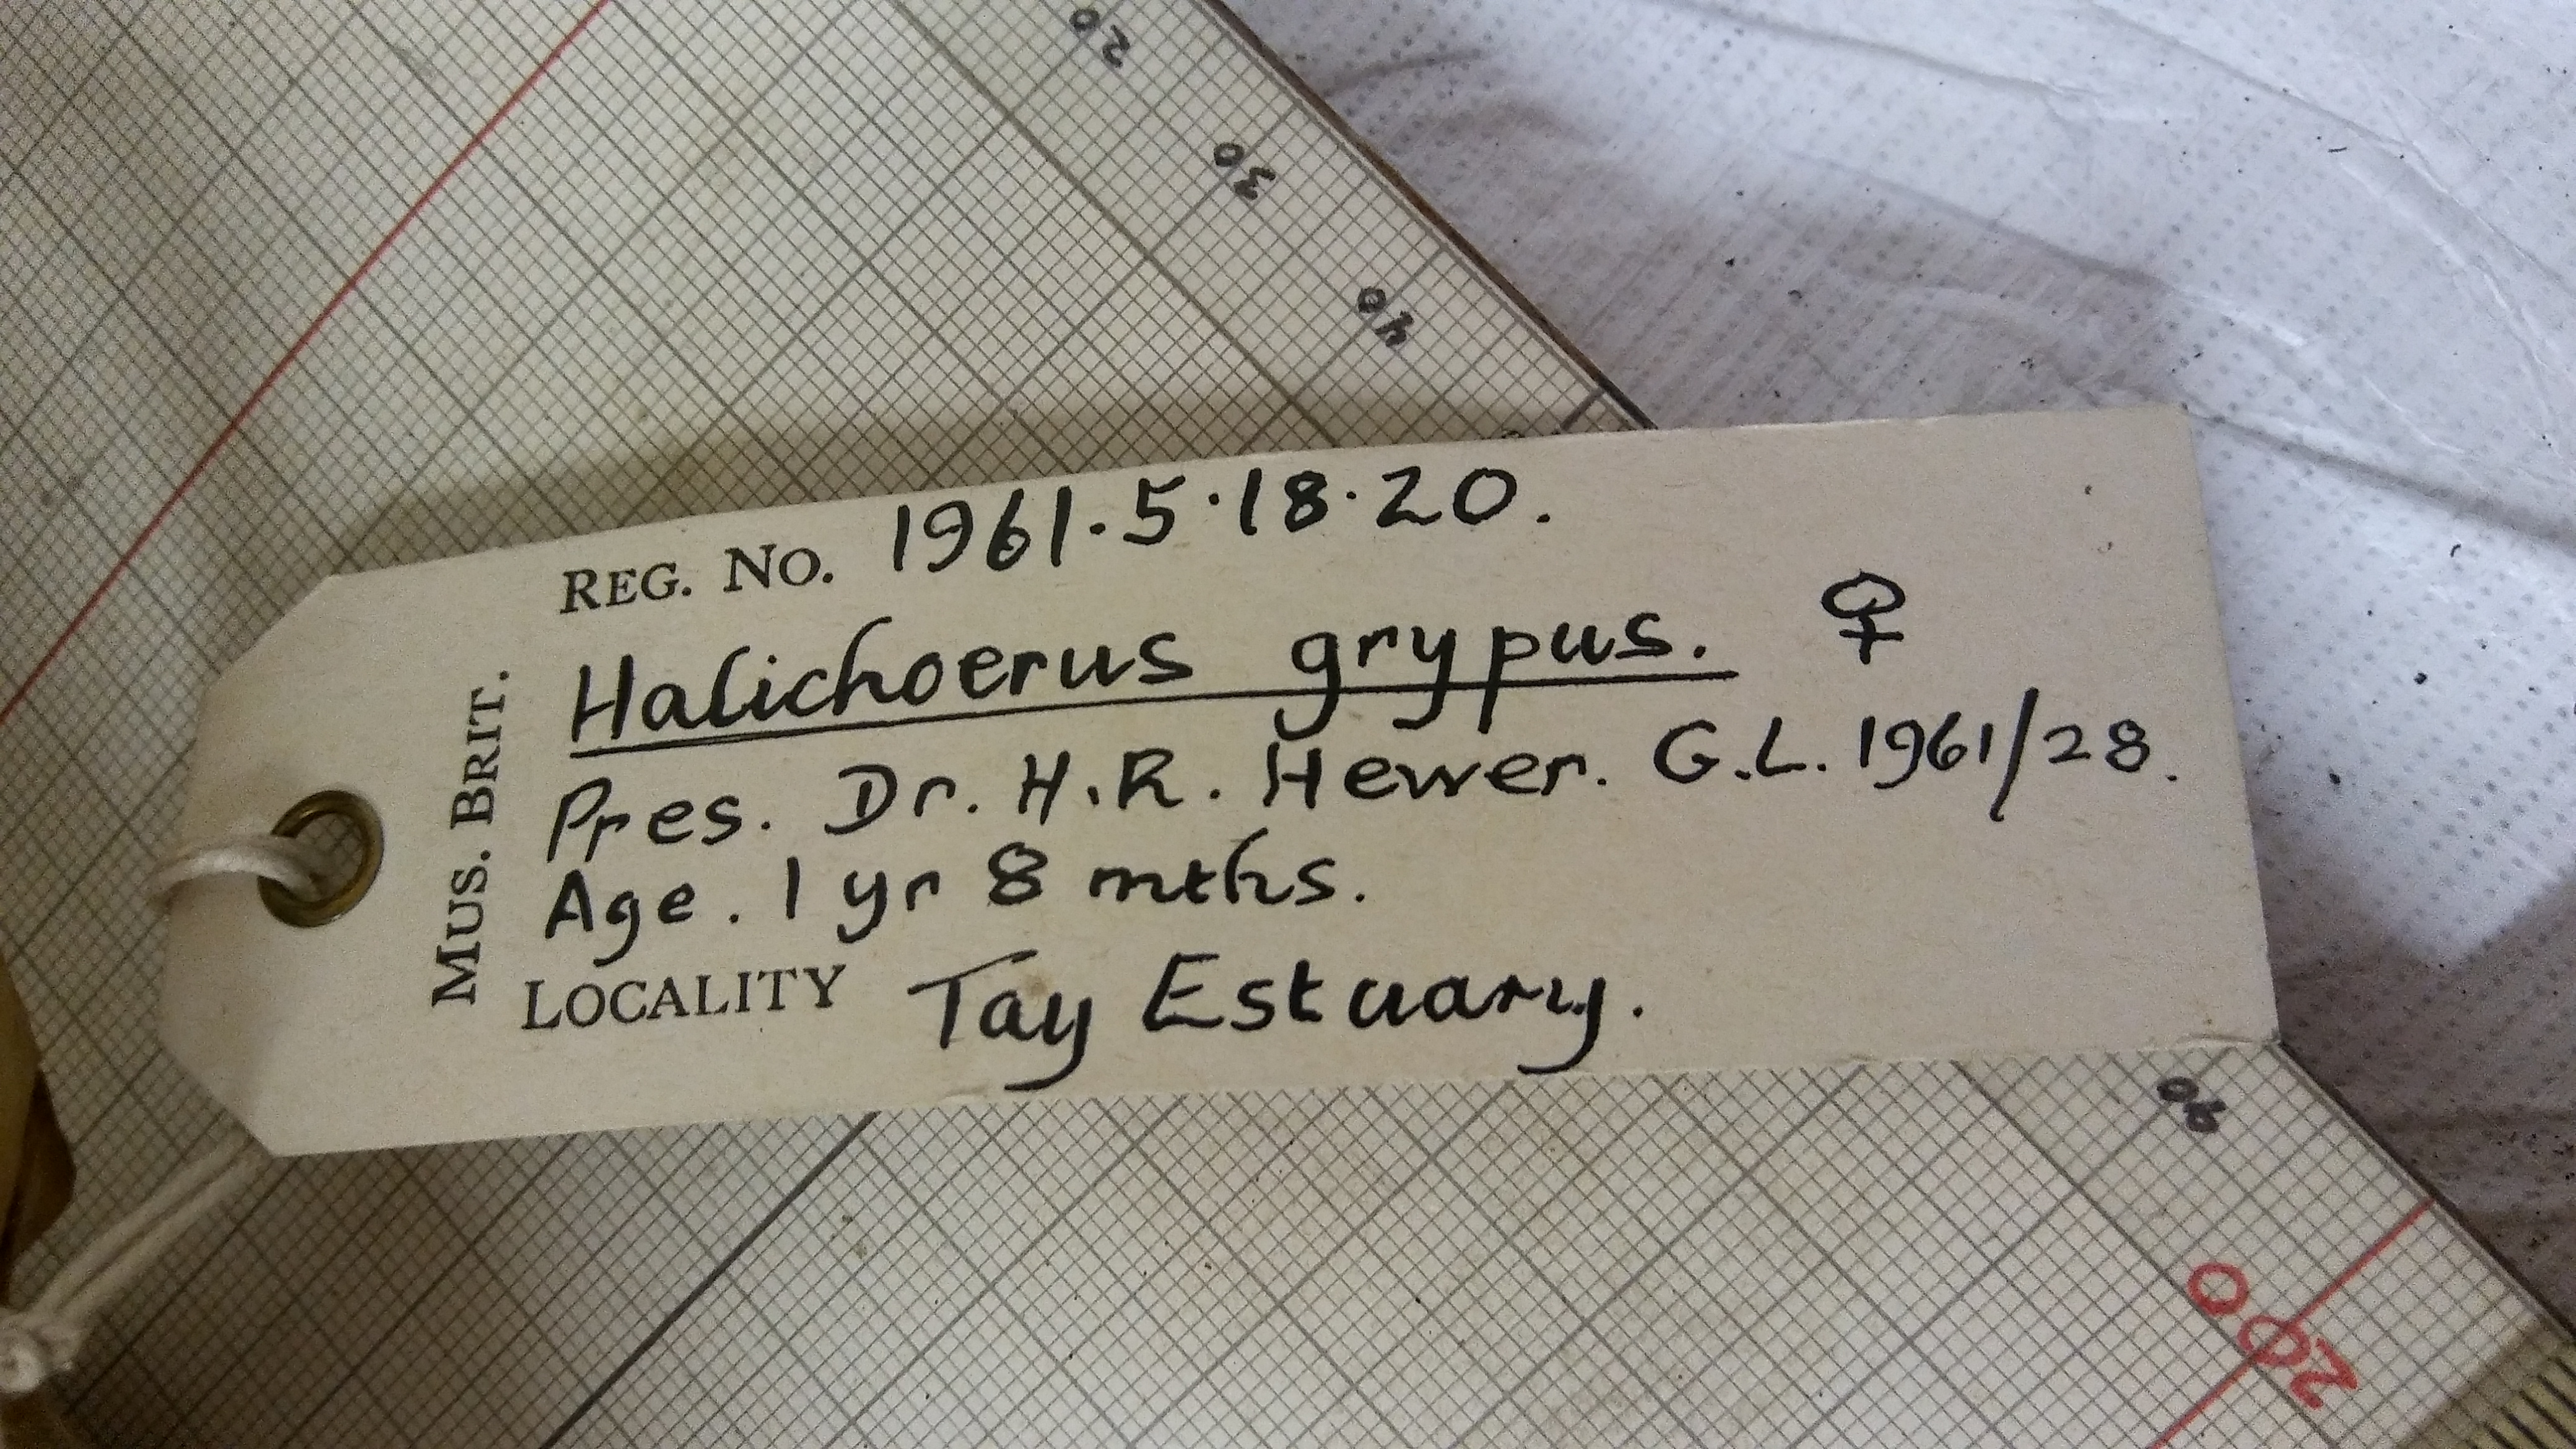 MUS. BRIT.
REG. NO. 1961.5.18.20.
Halichoerus grypus. ♀
Pres. Dr. H.R. Hewer. G.L. 1961/28.
Age. 1 yr 8 mths.
LOCALITY Tay Estuary.
20
30
40
90
200